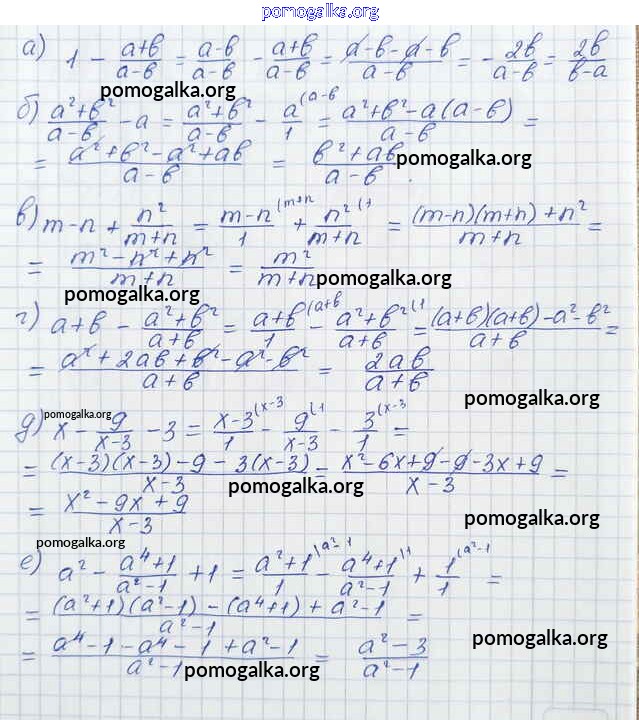 pomogalka.org
а) 1 - (a+b)/(a-b) = (a-b)/(a-b) - (a+b)/(a-b) = (a-b-a-b)/(a-b) = -2b/(a-b) = 2b/(b-a)
pomogalka.org
б) (a²+b²)/(a-b) - a = (a²+b²)/(a-b) - a/1 ⁽ᵃ⁻ᵇ = (a²+b²-a(a-b))/(a-b) =
= (a²+b²-a²+ab)/(a-b) = (b²+ab)/(a-b).
pomogalka.org
в) m-n + n²/(m+n) = (m-n)/1 ⁽ᵐ⁺ⁿ + n²/(m+n) ⁽¹ = ((m-n)(m+n)+n²)/(m+n) =
= (m²-n²+n²)/(m+n) = m²/(m+n)
pomogalka.org
pomogalka.org
г) a+b - (a²+b²)/(a+b) = (a+b)/1 ⁽ᵃ⁺ᵇ - (a²+b²)/(a+b) ⁽¹ = ((a+b)(a+b)-a²-b²)/(a+b) =
= (a²+2ab+b²-a²-b²)/(a+b) = 2ab/(a+b)
pomogalka.org
pomogalka.org
д) x - 9/(x-3) - 3 = (x-3)/1 ⁽ˣ⁻³ - 9/(x-3) ⁽¹ - 3/1 ⁽ˣ⁻³ =
= ((x-3)(x-3)-9-3(x-3))/(x-3) = (x²-6x+9-9-3x+9)/(x-3) =
pomogalka.org
= (x²-9x+9)/(x-3)
pomogalka.org
pomogalka.org
е) a² - (a⁴+1)/(a²-1) + 1 = (a²+1)/1 ⁽ᵃ²⁻¹ - (a⁴+1)/(a²-1) ⁽¹ + 1/1 ⁽ᵃ²⁻¹ =
= ((a²+1)(a²-1)-(a⁴+1)+a²-1)/(a²-1) =
= (a⁴-1-a⁴-1+a²-1)/(a²-1) = (a²-3)/(a²-1)
pomogalka.org
pomogalka.org
pomogalka.org